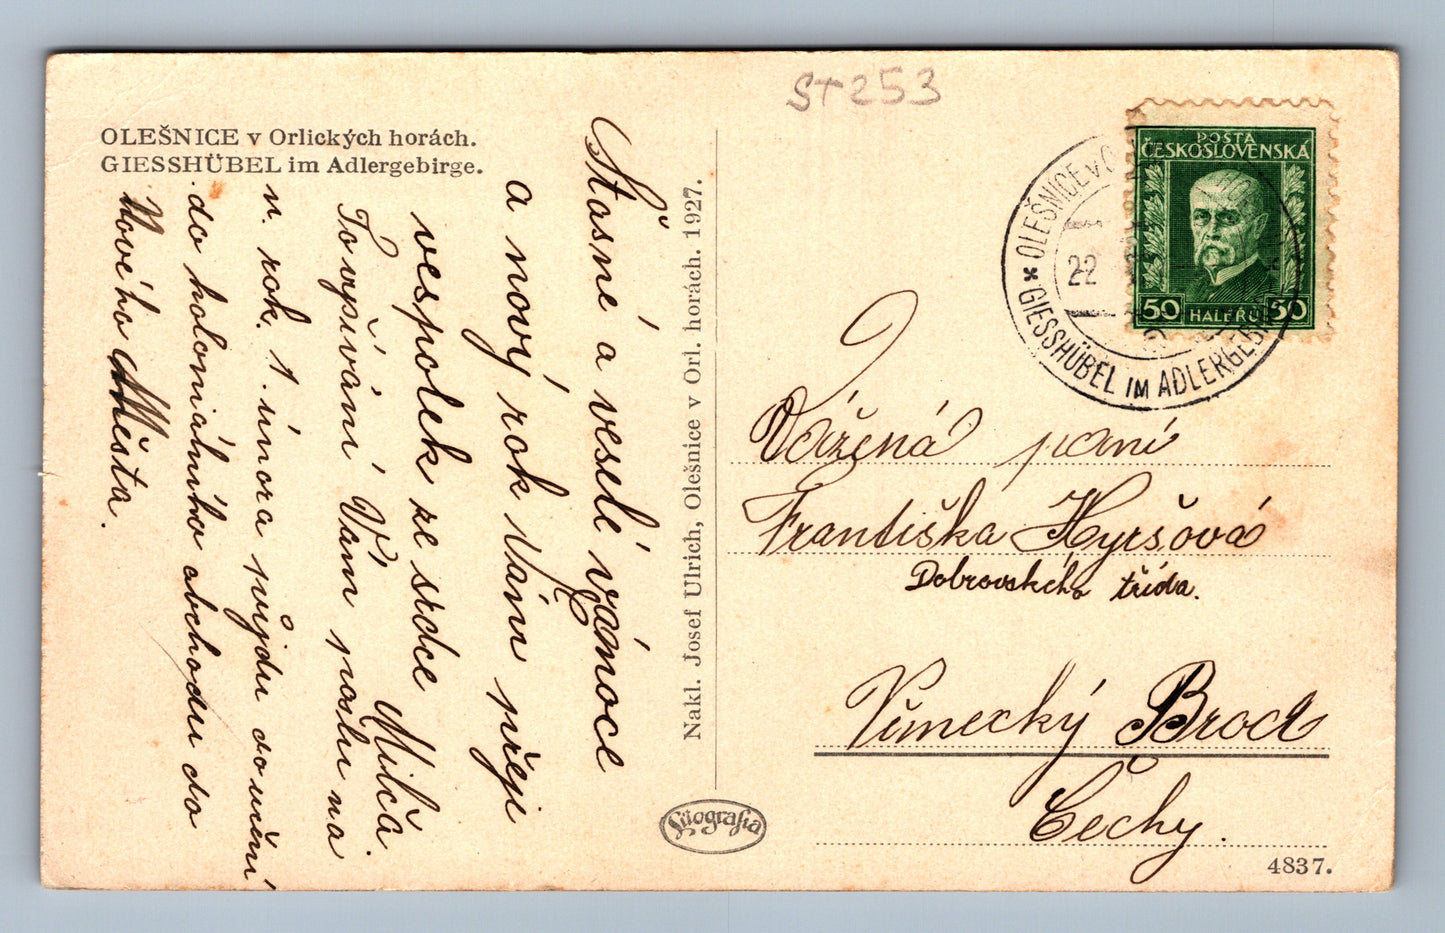 ST253
OLEŠNICE v Orlických horách.
GIESSHÜBEL im Adlergebirge.
Šťasné a veselé vánoce
a nový rok Vám přeji
vespolek ze srdce
Milča.
To vyšívání Vám pošlu na
n. rok. 1. února půjdu do učení
do koloniálního obchodu do
Nového Města.
Nakl. Josef Ulrich, Olešnice v Orl. horách. 1927.
POŠTA
ČESKOSLOVENSKÁ
50 HALÉŘŮ 50
OLEŠNICE v O
22
GIESSHÜBEL IM ADLERGEB
Vážená paní
Františka Hyršová
Dobrovského třída.
Německý Brod
Čechy.
Fotografia
4837.